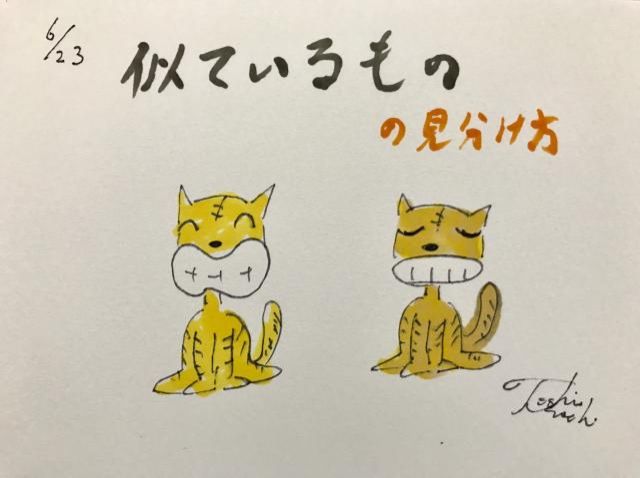 6/23
似ているもの
の見分け方